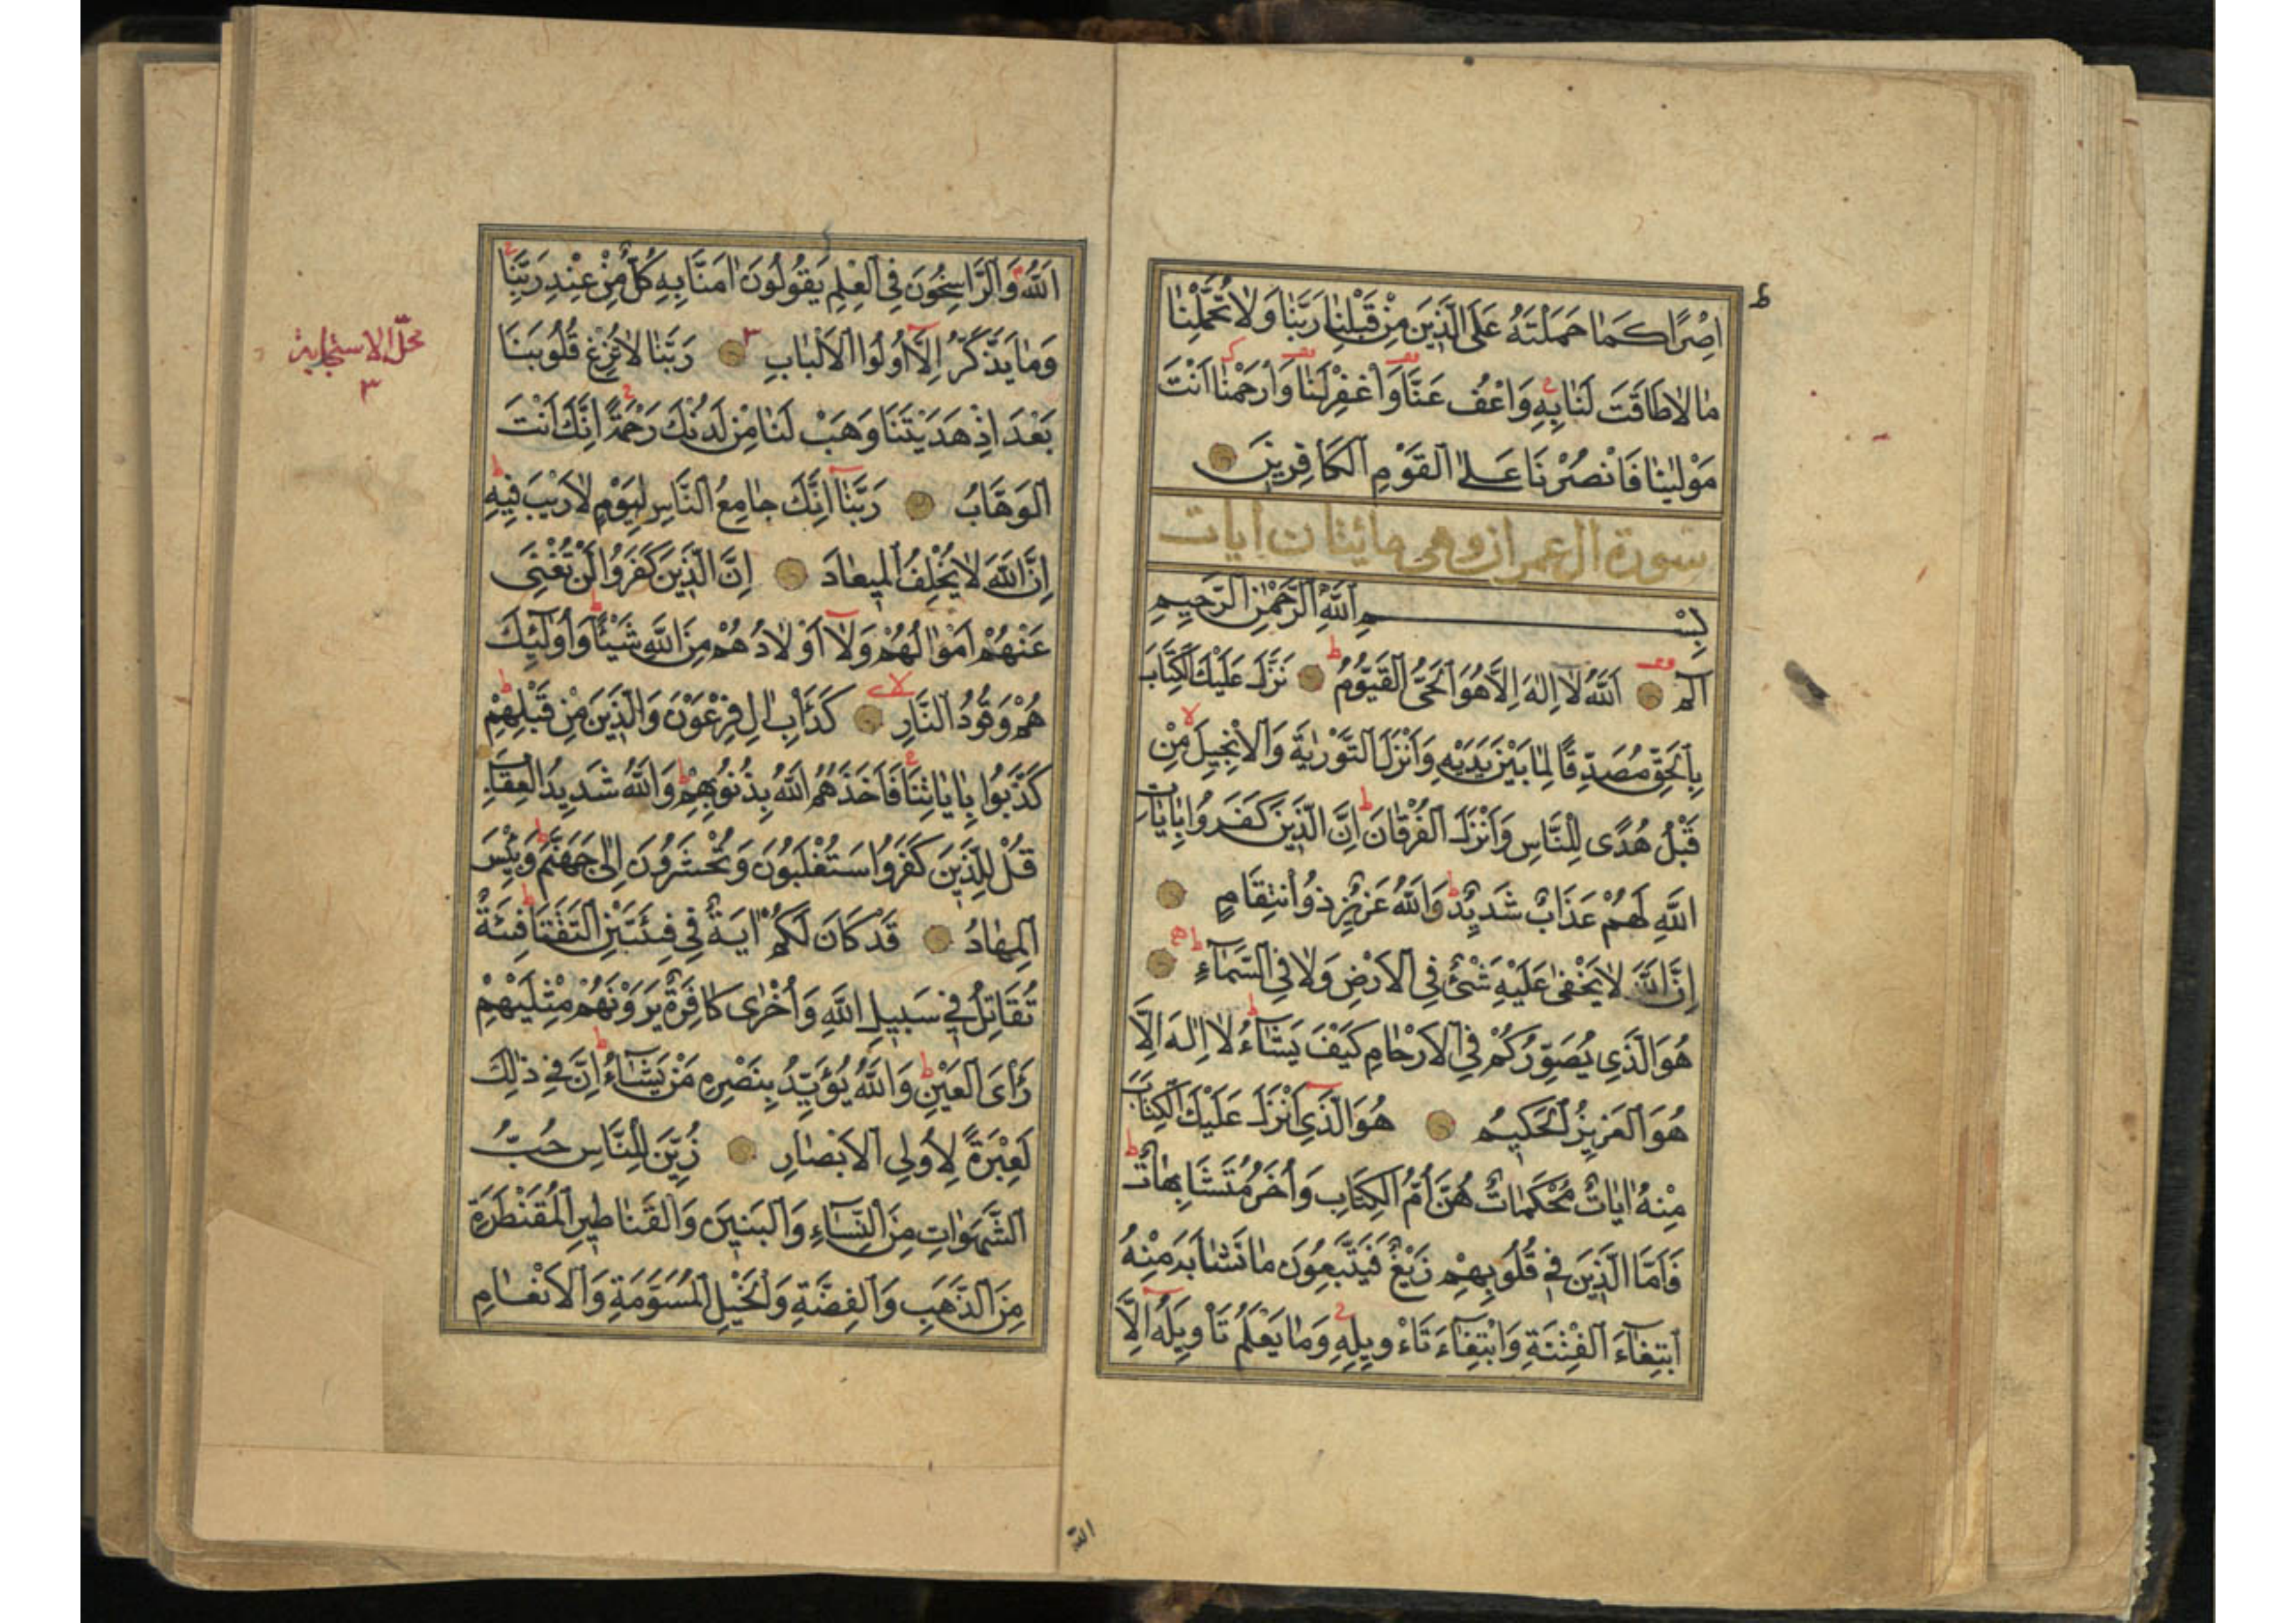 اِصْرًا كَمٰا حَمَلْتَهُ عَلَى الَّذِينَ مِنْ قَبْلِنٰا رَبَّنٰا وَلٰا تُحَمِّلْنٰا
مٰا لٰا طَاقَتَ لَنٰا بِهِ وَاعْفُ عَنَّا وَاغْفِرْ لَنٰا وَارْحَمْنٰا اَنْتَ
مَوْلٰينٰا فَانْصُرْنَا عَلَى الْقَوْمِ الْكَافِرِينَ
سورة ال عمران وهي مائتان ايات
بِسْمِ اللّٰهِ الرَّحْمٰنِ الرَّحِيمِ
الٓمٓ اَللّٰهُ لٰٓا اِلٰهَ اِلَّا هُوَ الْحَىُّ الْقَيُّومُ نَزَّلَ عَلَيْكَ الْكِتَابَ
بِالْحَقِّ مُصَدِّقًا لِمٰا بَيْنَ يَدَيْهِ وَاَنْزَلَ التَّوْرٰيةَ وَالْاِنْجِيلَ مِنْ
قَبْلُ هُدًى لِلنَّاسِ وَاَنْزَلَ الْفُرْقَانَ اِنَّ الَّذِينَ كَفَرُوا بِاٰيَاتِ
اللّٰهِ لَهُمْ عَذَابٌ شَدِيدٌ وَاللّٰهُ عَزِيزٌ ذُو انْتِقَامٍ
اِنَّ اللّٰهَ لٰا يَخْفٰى عَلَيْهِ شَىْءٌ فِي الْاَرْضِ وَلٰا فِي السَّمٰٓاءِ
هُوَ الَّذِي يُصَوِّرُكُمْ فِي الْاَرْحٰامِ كَيْفَ يَشٰٓاءُ لٰٓا اِلٰهَ اِلَّا
هُوَ الْعَزِيزُ الْحَكِيمُ هُوَ الَّذِي اَنْزَلَ عَلَيْكَ الْكِتٰابَ
مِنْهُ اٰيٰاتٌ مُحْكَمٰاتٌ هُنَّ اُمُّ الْكِتَابِ وَاُخَرُ مُتَشَابِهٰاتٌ
فَاَمَّا الَّذِينَ فِي قُلُوبِهِمْ زَيْغٌ فَيَتَّبِعُونَ مٰا تَشٰابَهَ مِنْهُ
ابْتِغٰٓاءَ الْفِتْنَةِ وَابْتِغٰٓاءَ تَاْوِيلِهِ وَمٰا يَعْلَمُ تَاْوِيلَهُ اِلَّا
الله
اَللّٰهُ وَالرَّاسِخُونَ فِي الْعِلْمِ يَقُولُونَ اٰمَنَّا بِهِ كُلٌّ مِنْ عِنْدِ رَبِّنٰا
وَمٰا يَذَّكَّرُ اِلَّٓا اُولُوا الْاَلْبٰابِ رَبَّنٰا لٰا تُزِغْ قُلُوبَنَا
بَعْدَ اِذْ هَدَيْتَنَا وَهَبْ لَنٰا مِنْ لَدُنْكَ رَحْمَةً اِنَّكَ اَنْتَ
الْوَهَّابُ رَبَّنٰٓا اِنَّكَ جٰامِعُ النَّاسِ لِيَوْمٍ لٰا رَيْبَ فِيهِ
اِنَّ اللّٰهَ لٰا يُخْلِفُ الْمِيعٰادَ اِنَّ الَّذِينَ كَفَرُوا لَنْ تُغْنِىَ
عَنْهُمْ اَمْوٰالُهُمْ وَلٰٓا اَوْلٰادُهُمْ مِنَ اللّٰهِ شَيْئًا وَاُولٰٓئِكَ
هُمْ وَقُودُ النَّارِ كَدَاْبِ اٰلِ فِرْعَوْنَ وَالَّذِينَ مِنْ قَبْلِهِمْ
كَذَّبُوا بِاٰيٰاتِنٰا فَاَخَذَهُمُ اللّٰهُ بِذُنُوبِهِمْ وَاللّٰهُ شَدِيدُ الْعِقَابِ
قُلْ لِلَّذِينَ كَفَرُوا سَتُغْلَبُونَ وَتُحْشَرُونَ اِلٰى جَهَنَّمَ وَبِئْسَ
الْمِهٰادُ قَدْ كَانَ لَكُمْ اٰيَةٌ فِي فِئَتَيْنِ الْتَقَتَا فِئَةٌ
تُقَاتِلُ فِي سَبِيلِ اللّٰهِ وَاُخْرٰى كَافِرَةٌ يَرَوْنَهُمْ مِثْلَيْهِمْ
رَاْىَ الْعَيْنِ وَاللّٰهُ يُؤَيِّدُ بِنَصْرِهِ مَنْ يَشٰٓاءُ اِنَّ فِي ذٰلِكَ
لَعِبْرَةً لِاُولِي الْاَبْصٰارِ زُيِّنَ لِلنَّاسِ حُبُّ
الشَّهَوٰاتِ مِنَ النِّسٰٓاءِ وَالْبَنِينَ وَالْقَنٰاطِيرِ الْمُقَنْطَرَةِ
مِنَ الذَّهَبِ وَالْفِضَّةِ وَالْخَيْلِ الْمُسَوَّمَةِ وَالْاَنْعٰامِ
محلّ الاستجابة
٣